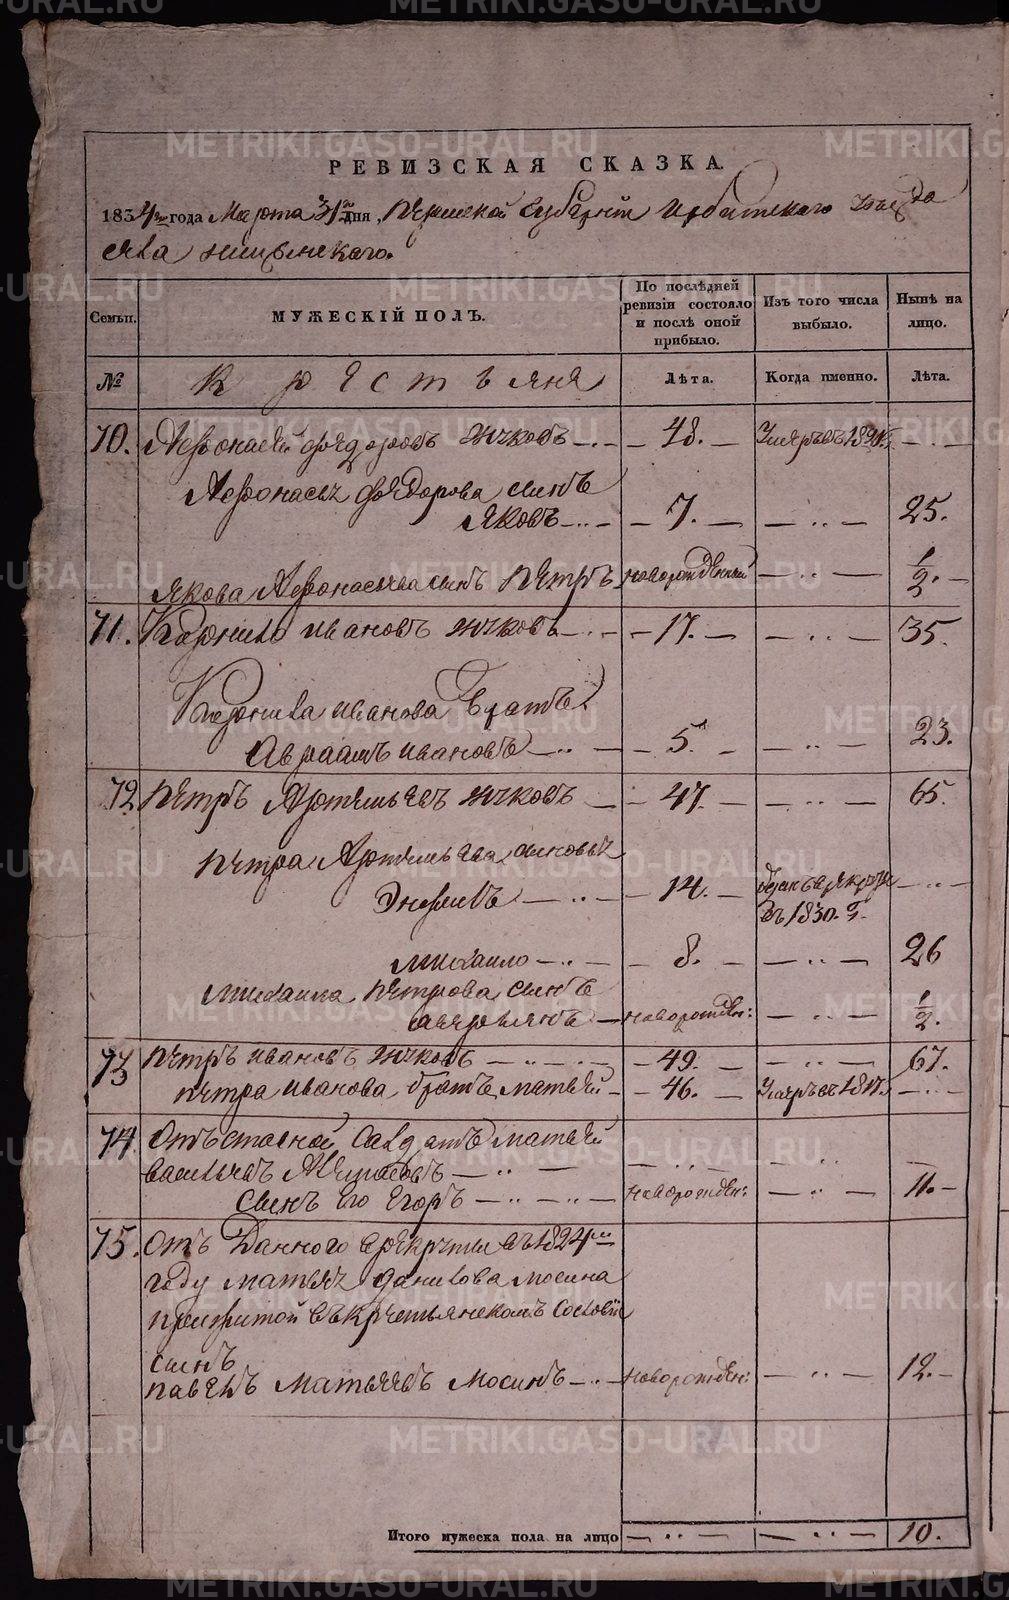 РЕВИЗСКАЯ СКАЗКА.
1834го года Марта 31го дня, Пермской Губернiи Ирбитского уезда
села
По послѣдней ревизiи состояло и послѣ оной прибыло.
Изъ того числа выбыло.
Нынѣ на лицо.
Семьи.
МУЖЕСКIЙ ПОЛЪ.
№ Крестьяня Лѣта. Когда именно. Лѣта.
70. Афонасей Федоровъ Жчковъ 48. Умеръ въ 18
Афонасья Федорова сынъ
Яковъ 7. 25.
Якова Афонасьева сынъ Петръ новорожденный 1/2.
71. Корнило Ивановъ Жчковъ 17. 35.
Корнила Иванова братъ
Авраамъ Ивановъ 5. 23.
72 Петръ Артемьевъ Жчковъ 47. 65.
Петра Артемьева сыновья
14. въ рекруты
въ 1830. Г.
Михаило 8. 26
Михаила Петрова сынъ
новорожден: 1/2.
73 Петръ Ивановъ Жчковъ 49. 67.
Петра Иванова братъ Матвей 46. Умеръ въ 18
74. Отъставной Салдатъ Матвей
Васильевъ
Сынъ Его Егоръ новорожден: 11.
75. Отъ Данного в рекруты въ 1824м
году Матвея Данилова Мосина
прижитой въ крестьянскомъ Сословiи
сынъ
Павелъ Матвеевъ Мосинъ новорожден: 12.
Итого мужеска пола на лицо 10.
METRIKI.GASO-URAL.RU